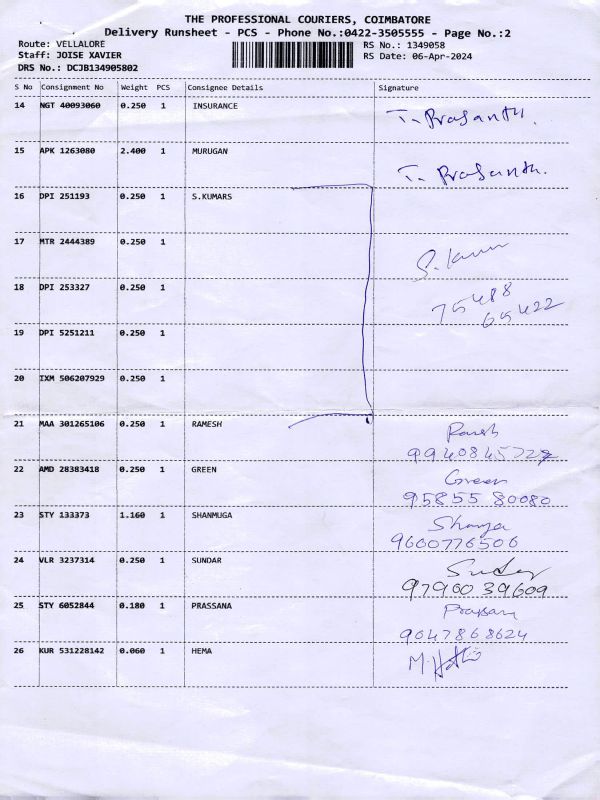 THE PROFESSIONAL COURIERS, COIMBATORE
Delivery Runsheet - PCS - Phone No.:0422-3505555 - Page No.:2
Route: VELLALORE RS No.: 1349058
Staff: JOISE XAVIER RS Date: 06-Apr-2024
DRS No.: DCJB134905802
S No Consignment No Weight PCS Consignee Details Signature
14 NGT 40093060 0.250 1 INSURANCE T. Prasanth.
15 APK 1263080 2.400 1 MURUGAN T. Prasanth.
16 DPI 251193 0.250 1 S.KUMARS
17 MTR 2444389 0.250 1
18 DPI 253327 0.250 1 75488
65422
19 DPI 5251211 0.250 1
20 IXM 506207929 0.250 1
21 MAA 301265106 0.250 1 RAMESH
22 AMD 28383418 0.250 1 GREEN Green
95855 80080
23 STY 133373 1.160 1 SHANMUGA
9600776506
24 VLR 3237314 0.250 1 SUNDAR
97900 39609
25 STY 6052844 0.180 1 PRASSANA
9047868624
26 KUR 531228142 0.060 1 HEMA